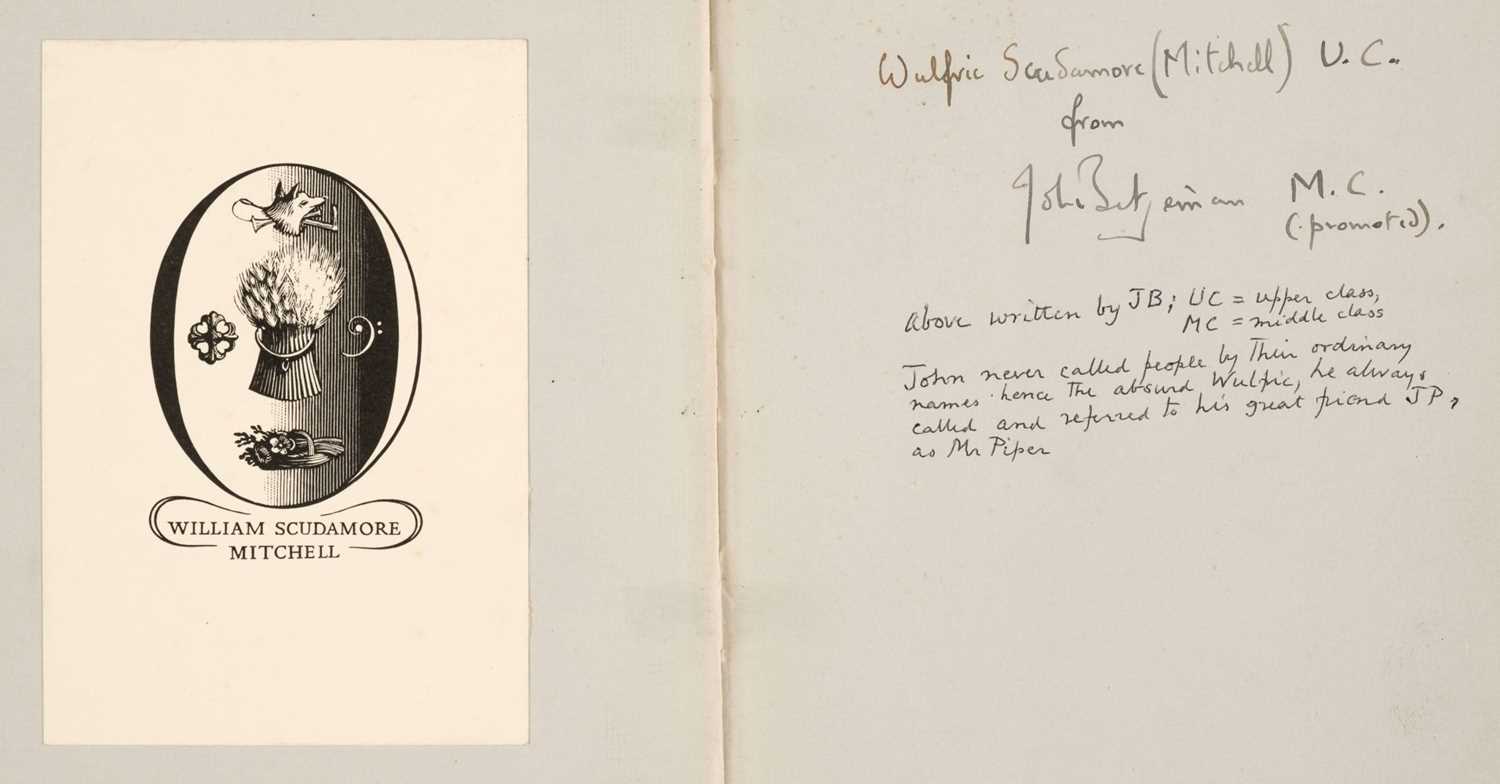 WILLIAM SCUDAMORE
MITCHELL
Wulfric Scudamore (Mitchell) U.C.
from
John Betjeman M.C.
(promoted).
Above written by JB; UC = upper class,
MC = middle class
John never called people by Their ordinary
names. hence The absurd Wulfric, he always
called and referred to his great friend JP,
as Mr Piper